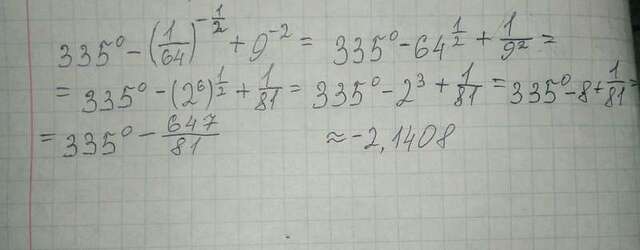 335⁰ - (1/64)^(-1/2) + 9⁻² = 335⁰ - 64^(1/2) + 1/9² =
= 335⁰ - (2⁶)^(1/2) + 1/81 = 335⁰ - 2³ + 1/81 = 335⁰ - 8 + 1/81 =
= 335⁰ - 647/81 ≈ -2,1408